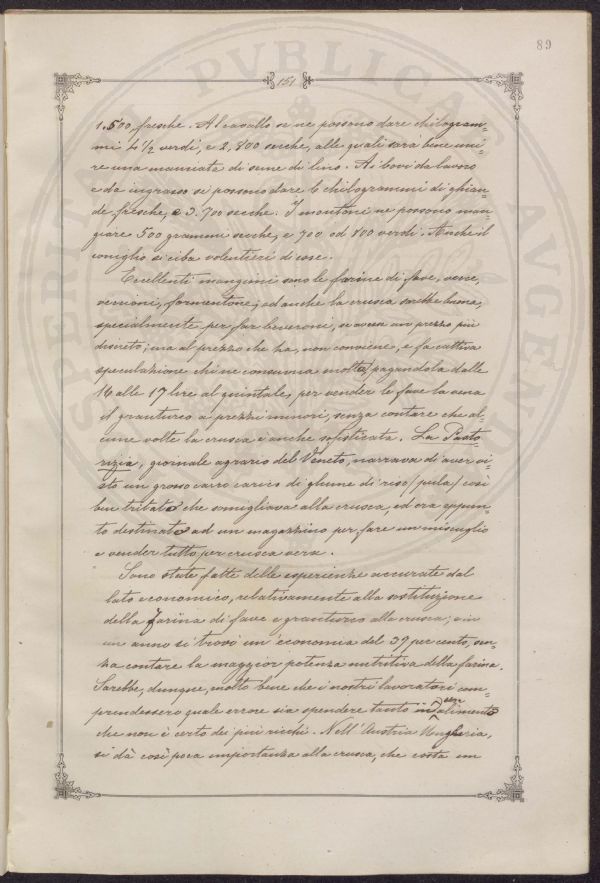 89
151
1.500 fresche. Al cavallo se ne possono dare chilogram=
mi 4 1/2 verdi, e 2,800 secche, alle quali sarà bene uni=
re una manciata di seme di lino. Ai bovi da lavoro
e da ingrasso si possono dare 6 chilogrammi di ghian=
de, fresche, e 3.700 secche. I montoni ne possono man=
giare 500 grammi secche, e 700 od 800 verdi. Anche il
coniglio si ciba volentieri di esse.
Eccellenti mangimi sono le farine di fave, vecce,
formentone; ed anche la crusca sarebbe buona,
specialmente per far beveroni, se avesse un prezzo più
discreto; ma al prezzo che ha, non conviene, e fa cattiva
speculazione chi ne consuma molta, pagandola dalle
16 alle 17 lire al quintale, per vender le fave la vena
il granturco a prezzi minori, senza contare che al=
cune volte la crusca è anche sofisticata. La Pasto=
rizia, giornale agrario del Veneto, narrava di aver vi=
sto un grosso carro carico di glume di riso (pula) così
ben tritato che somigliava alla crusca, ed era appun=
to destinato ad un magazzino per fare un miscuglio
e vender tutto per crusca vera.
Sono state fatte delle esperienze accurate dal
lato economico, relativamente alla sostituzione
della farina di fave e granturco alla crusca; e in
un anno si trovò un economia del 39 per cento, sen=
za contare la maggior potenza nutritiva della farina.
Sarebbe, dunque, molto bene che i nostri lavoratori com=
prendessero quale errore sia spendere tanto in un alimento
che non è certo dei più ricchi. Nell'Austria Ungheria,
si dà così poca importanza alla crusca, che costa un
PVBLICAE
AVGENDAE